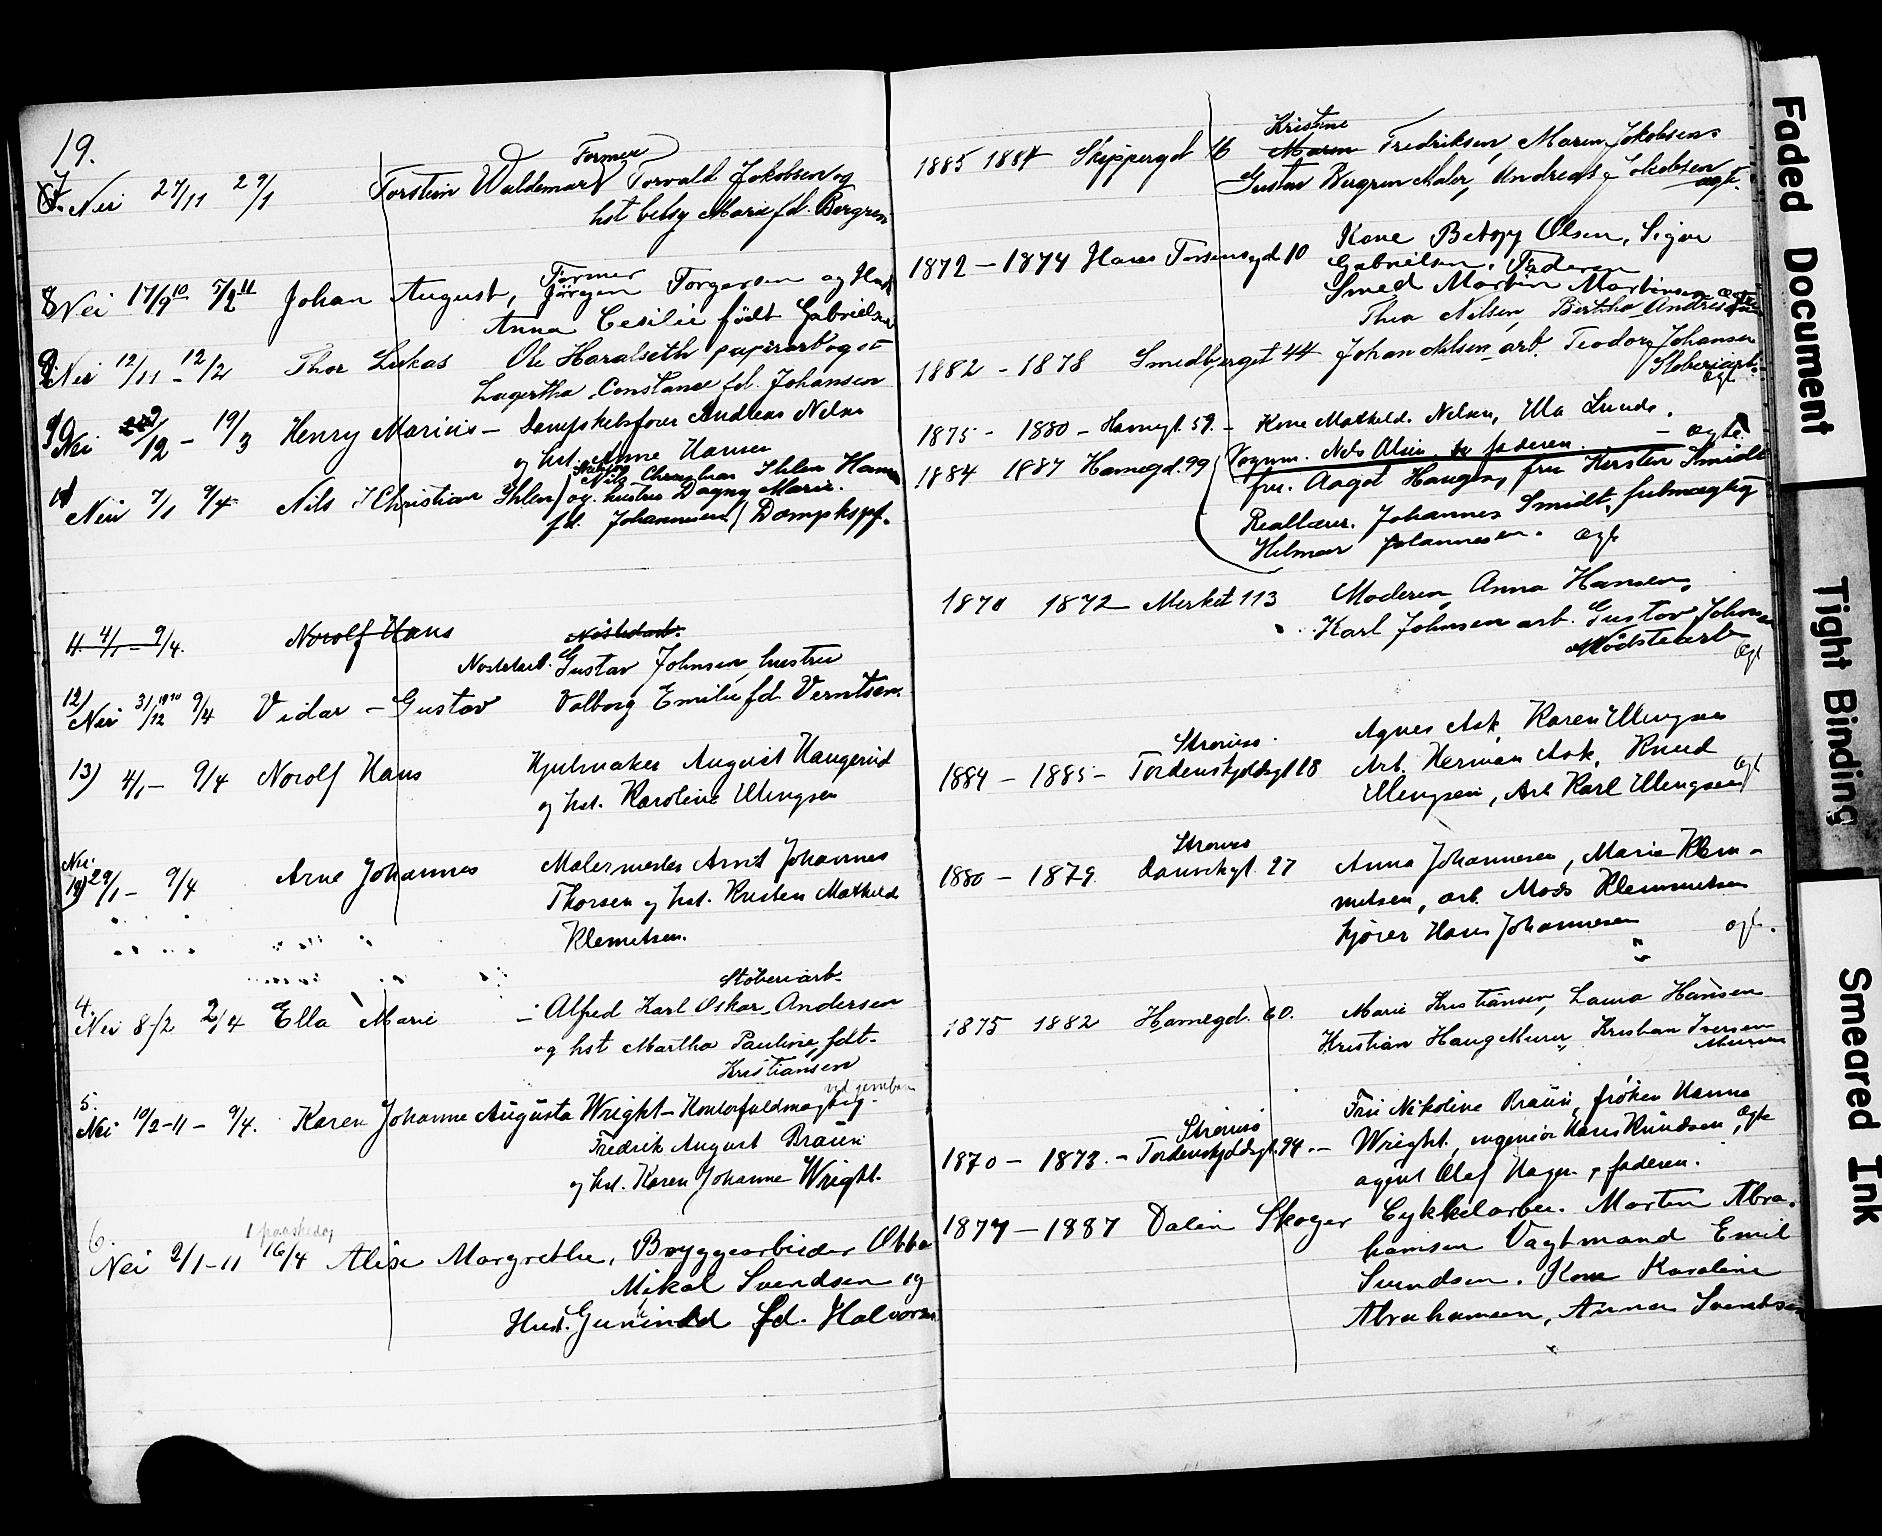 19.
7. Nei 27/11 29/1 Torstein Waldemar Former Torvald Jakobsen og
hst betsy Marie fd. Bergren
8 Nei 17/9 10 5/2 11 Johan August, Former Jörgen Torgersen og Hust
Anna Cesilie født Gabrielsen
9 Nei 12/11 - 12/2 Thor Lukas Ole Haralseth papirarb og st
Lagertha Constance fd. Johansen
Nei /12 - 19/3 Henry Marius - Dampskibsfører Andreas Nelsen
og hst. Anne Hansen
Nei 7/1 9/4 Nils Christian Ihlen
og hustru Dagny Marie
fd. Johannesen Dampskpf.
11 4/1 - 9/4. Norolf Hans
Nostetarb. Gustav Johnsen, hustru
12) Nei 31/12 1910 9/4 Vidar - Gustav Valborg Emilie fd. Berntsen
13) 4/1 - 9/4 Norolf Hans Hjulmaker August Haugerud
og hst. Karoline Ellingsen
Nei.
14) 29/1 - 9/4 Arne Johannes Malermester Arnt Johannes
Thorsen og hst. Kristen Mathilde
Klemetsen.
Stöberiarb.
4. Nei 8/2 2/4 Ella Marie - Alfred Karl Oskar Andersen
og hst Martha Pauline, fdt.
Kristiansen
5. Nei 10/2-11 - 9/4. Karen Johanne Augusta Wright - Kontorfuldmægtig
Fredrik August Braun
og hst. Karen Johanne Wright.
1 paaskedag
6. Nei 2/1-11 16/4 Alise Margrethe, Bryggearbeider Otto
Mikal Svendsen og
Hust. Gunindd fd. Halvorsen
Kristine
1885 1884 Skippergd 16 Maren Fredriksen, Maren Jakobsen
Gustav Bergren Maler, Andreas Jakobsen
ægte.
1872 - 1874 Hans Tordsensgd 10 Kone Betzy Olsen, Signe
Gabrielsen, Faderen
Smed Martin Martinsen ægte
Thea Nelsen, Bertha Andresen
1882 - 1878 Smedbjerget 44 Johan Olsen arb. Teodor Johansen
Stöberiarb.
ægt
1875 - 1880 - Havnegt. 59. - Kone Mathilde Nelsen, Ula Lunde.
Vognm. Nels Olsen, faderen. - ægte.
1884 1887 Havnegd. 99 fru. Aagot Haugen, fru Kirsten Smidt
Reallærer. Johannes Smidt, fulmægtig
Hilmar Johannesen. ægt
1870 1872 - Merket 113 Moderen, Anna Hansen,
Karl Johnsen arb. Gustav Johnsen
Nöstetarb
ægt
Strömsö. Agnes Ask, Karen Ellingsen
1884 - 1885 - Tordenskjoldsgt 18 Arb. Herman Ask, Knud
Ellingsen, Arb Karl Ellingsen ægt
Strömsö
1880 - 1879. Danvikgt. 27 Anna Johannesen, Marie Klem-
metsen, arb. Mads Klemmetsen
kjører Hans Johannesen ægt.
1875 1882 Havnegd. 60. Marie Kristiansen, Laura Hansen
Kristian Haug Murer, Kristian Iversen
Murer
Fru Nikoline Braun, frøken Hanna
Strömsö
1870 - 1873. - Tordenskjoldsgt. 94. - Wright, ingeniør Hans Knudsen, ægte
agent Olaf Hagen, faderen.
1877 - 1887 Dalen Skoger Cykkelarbei. Morten Abra-
hamsen Vagtmand Emil
Svendsen. Kone Karoline
Abrahamsen, Anna Svendsen
Faded Document
Tight Binding
Smeared Ink